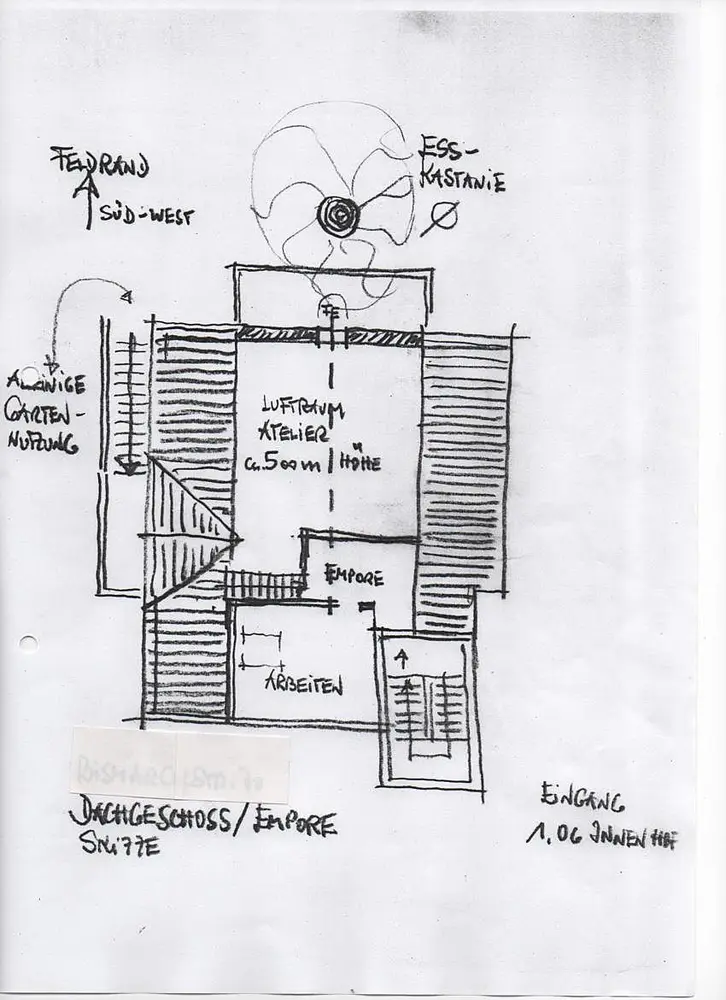 FELDRAND
SÜD-WEST
ESS-
KASTANIE
ALLEINIGE
GARTEN-
NUTZUNG
FE
LUFTRAUM
ATELIER
ca. 5oom HÖHE
EMPORE
ARBEITEN
DACHGESCHOSS/EMPORE
SKIZZE
EINGANG
1.OG INNENHOF